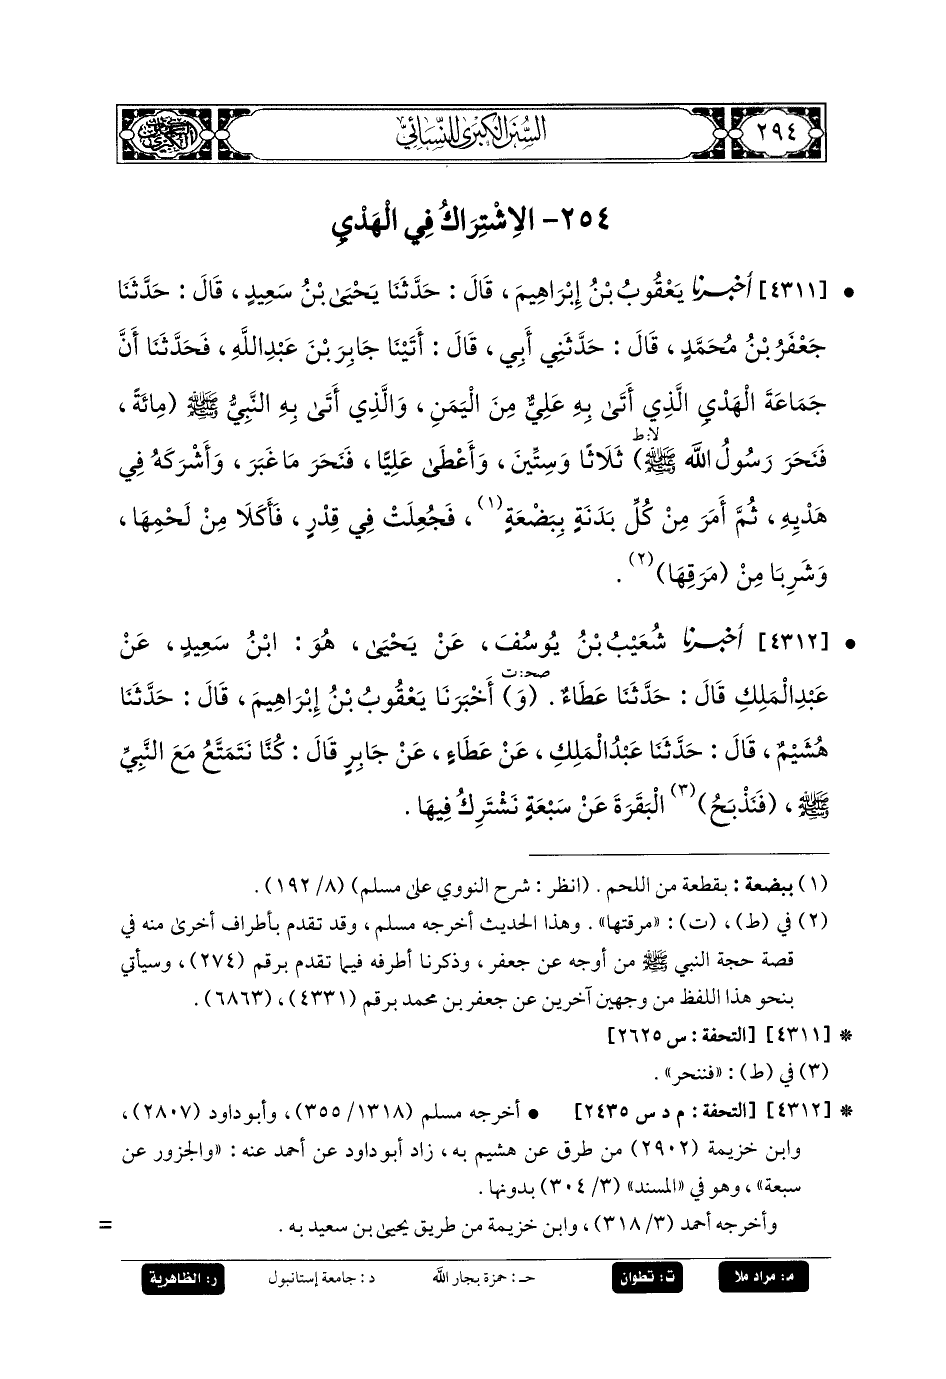 ٢٩٤
السُّنَنُ الْكُبْرَىٰ لِلنَّسَائِيِّ
٢٥٤- الِاشْتِرَاكُ فِي الْهَدْيِ
• [٤٣١١] أخبرنا يَعْقُوبُ بْنُ إِبْرَاهِيمَ، قَالَ: حَدَّثَنَا يَحْيَىٰ بْنُ سَعِيدٍ، قَالَ: حَدَّثَنَا
جَعْفَرُ بْنُ مُحَمَّدٍ، قَالَ: حَدَّثَنِي أَبِي، قَالَ: أَتَيْنَا جَابِرَ بْنَ عَبْدِاللَّهِ، فَحَدَّثَنَا أَنَّ
جَمَاعَةَ الْهَدْيِ الَّذِي أَتَىٰ بِهِ عَلِيٌّ مِنَ الْيَمَنِ، وَالَّذِي أَتَىٰ بِهِ النَّبِيُّ ﷺ (مِائَةً،
لا:ط
فَنَحَرَ رَسُولُ اللَّه ﷺ) ثَلَاثًا وَسِتِّينَ، وَأَعْطَىٰ عَلِيًّا، فَنَحَرَ مَا غَبَرَ، وَأَشْرَكَهُ فِي
هَدْيِهِ، ثُمَّ أَمَرَ مِنْ كُلِّ بَدَنَةٍ بِبَضْعَةٍ(١)، فَجُعِلَتْ فِي قِدْرٍ، فَأَكَلَا مِنْ لَحْمِهَا،
وَشَرِبَا مِنْ (مَرَقِهَا)(٢).
• [٤٣١٢] أخبرنا شُعَيْبُ بْنُ يُوسُفَ، عَنْ يَحْيَىٰ، هُوَ: ابْنُ سَعِيدٍ، عَنْ
صحـ:ت
عَبْدِالْمَلِكِ قَالَ: حَدَّثَنَا عَطَاءٌ. (وَ) أَخْبَرَنَا يَعْقُوبُ بْنُ إِبْرَاهِيمَ، قَالَ: حَدَّثَنَا
هُشَيْمٌ، قَالَ: حَدَّثَنَا عَبْدُالْمَلِكِ، عَنْ عَطَاءٍ، عَنْ جَابِرٍ قَالَ: كُنَّا نَتَمَتَّعُ مَعَ النَّبِيِّ
ﷺ، (فَنَذْبَحُ)(٣) الْبَقَرَةَ عَنْ سَبْعَةٍ نَشْتَرِكُ فِيهَا.
(١) ببضعة: بقطعة من اللحم. (انظر: شرح النووي على مسلم) (٨/ ١٩٢).
(٢) في (ط)، (ت): «مرقتها». وهذا الحديث أخرجه مسلم، وقد تقدم بأطراف أخرىٰ منه في
قصة حجة النبي ﷺ من أوجه عن جعفر، وذكرنا أطرفه فيما تقدم برقم (٢٧٤)، وسيأتي
بنحو هذا اللفظ من وجهين آخرين عن جعفر بن محمد برقم (٤٣٣١)، (٦٨٦٣).
* [٤٣١١] [التحفة: س ٢٦٢٥]
(٣) في (ط): «فننحر».
* [٤٣١٢] [التحفة: م د س ٢٤٣٥] • أخرجه مسلم (١٣١٨/ ٣٥٥)، وأبو داود (٢٨٠٧)،
وابن خزيمة (٢٩٠٢) من طرق عن هشيم به، زاد أبو داود عن أحمد عنه: «والجزور عن
سبعة»، وهو في «المسند» (٣/ ٣٠٤) بدونها.
وأخرجه أحمد (٣/ ٣١٨)، وابن خزيمة من طريق يحيىٰ بن سعيد به. =
م: مراد ملا ت: تطوان حـ: حمزة بجار اللَّه د: جامعة إستانبول ر: الظاهرية